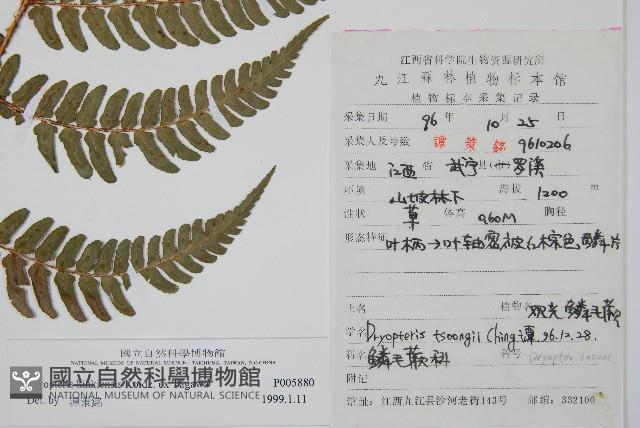 江西省科学院生物资源研究所
九江森林植物标本馆
植物标本采集记录
采集日期 96年 10月 25日
采集人及号数 譚策銘 9610206
采集地 江西 省 武宁 县(市) 罗溪
环境 山坡林下 海拔 1200 m
性状 草 体高 0.60M 胸径
形态特征 叶柄→叶轴密被红棕色鳞片
土名 植物名 观光鳞毛蕨
学名 Dryopteris tsoongii Ching 谭.96.12.28.
科名 鳞毛蕨科 科号 Dryopteridaceae
附记
馆址: 江西九江县沙河老街143号 邮编: 332100
國立自然科學博物館
NATIONAL MUSEUM OF NATURAL SCIENCE, TAICHUNG, TAIWAN, R.O.CHINA
P005880
Det. by 譚策銘 1999.1.11
國立自然科學博物館
NATIONAL MUSEUM OF NATURAL SCIENCE